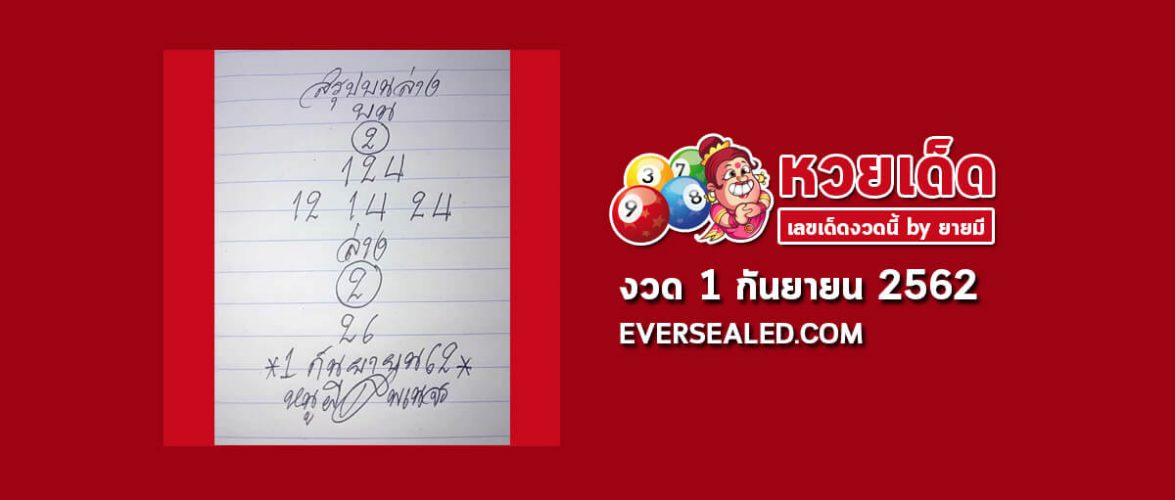 สรุปบนล่าง
บน
2
124
12 14 24
ล่าง
2
26
*1 กันยายน62*
หนูผี พเนจร
3 7
9 8
หวยเด็ด
เลขเด็ดงวดนี้ by ยายมี
งวด 1 กันยายน 2562
EVERSEALED.COM